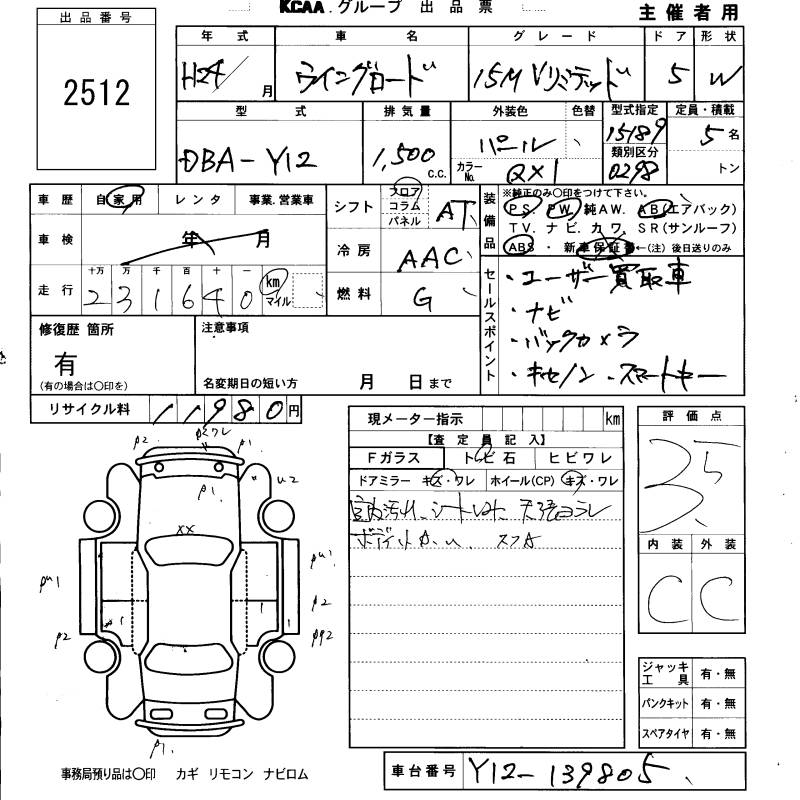 KCAA.グループ 出品票
主催者用
出品番号
2512
年式 車名 グレード ドア 形状
H24/ 月 ウイングロード 15M Vリミテッド 5 W
型式 排気量 外装色 色替 型式指定 定員・積載
DBA-Y12 1,500 c.c. パール 15189 5名
カラーNo. QX1 類別区分 0298 トン
車歴 自家用 レンタ 事業.営業車
シフト フロア コラム パネル AT
車検 年 月
冷房 AAC
走行 十万 万 千 百 十 一
2 3 1 6 4 0 km マイル
燃料 G
装備品 ※純正のみ〇印をつけて下さい。
PS. PW. 純AW. AB(エアバック)
TV. ナビ. カワ. SR(サンルーフ)
ABS・新車保証書←(注)後日送りのみ
セールスポイント
・ユーザー買取車
・ナビ
・バックカメラ
・キセノン・スマートキー
修復歴 箇所
有
(有の場合は〇印を)
注意事項
名変期日の短い方 月 日まで
リサイクル料 11980円
現メーター指示 km
【査定員記入】
Fガラス トビ石 ヒビワレ
ドアミラー キズ・ワレ ホイール(CP) キズ・ワレ
評価点
3.5
内装 外装
C C
ジャッキ工具 有・無
パンクキット 有・無
スペアタイヤ 有・無
車台番号 Y12-139805
P2
P1
P1
U2
XX
PU1
PU1
P2
P2
P1
事務局預り品は〇印 カギ リモコン ナビロム